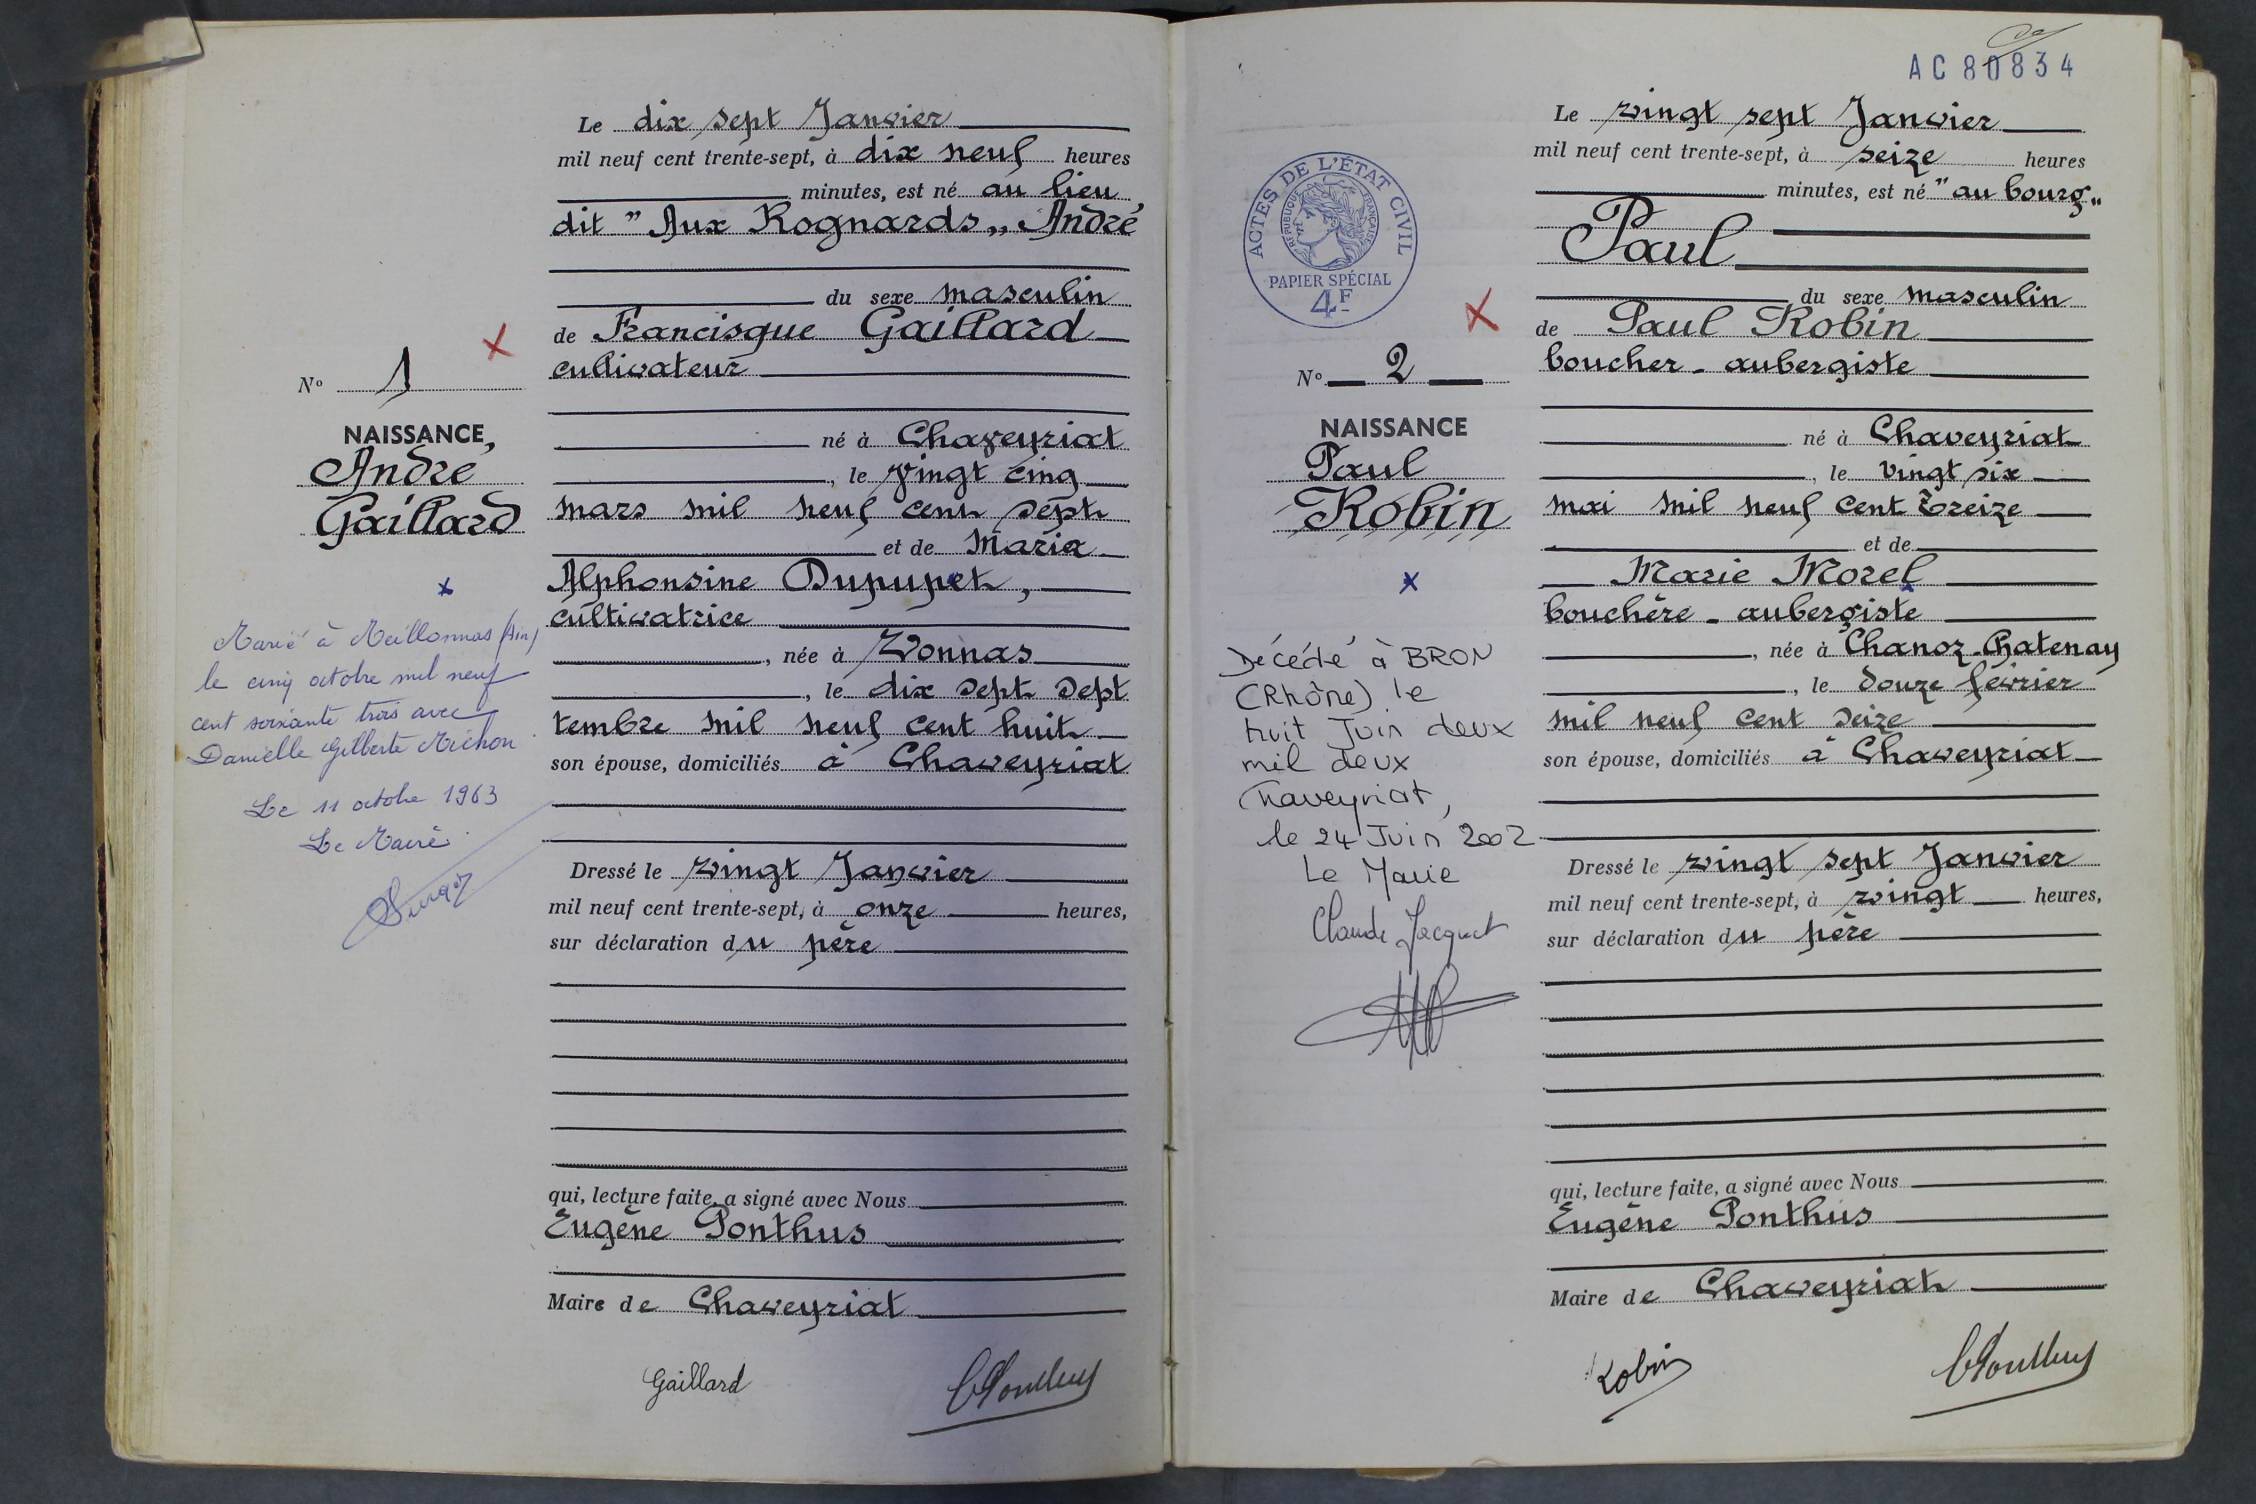 Le dix sept Janvier
mil neuf cent trente-sept, à dix neuf heures
minutes, est né au lieu
dit " Aux Rognards „ André
du sexe masculin
de Francisque Gaillard
cultivateur
né à Chaveyriat
, le vingt cinq
mars mil neuf cent sept
et de Maria
Alphonsine Dupupet,
cultivatrice
, née à Vonnas
, le dix sept sept
tembre mil neuf cent huit
son épouse, domiciliés à Chaveyriat
Dressé le vingt Janvier
mil neuf cent trente-sept, à onze heures,
sur déclaration du père
qui, lecture faite, a signé avec Nous
Eugène Ponthus
Maire de Chaveyriat
Gaillard
EPonthus
N° 1
NAISSANCE
André
Gaillard
Marié à Meillonnas (Ain)
le cinq octobre mil neuf
cent soixante trois avec
Danielle Gilberte Michon
Le 11 octobre 1963
Le Maire
AC 80834
Le vingt sept Janvier
mil neuf cent trente-sept, à seize heures
minutes, est né " au bourg „
Paul
du sexe masculin
de Paul Robin
boucher - aubergiste
né à Chaveyriat
, le vingt six
mai mil neuf cent treize
et de
Marie Morel
bouchère - aubergiste
, née à Chanoz-Chatenay
, le douze février
mil neuf cent seize
son épouse, domiciliés à Chaveyriat
Dressé le vingt sept Janvier
mil neuf cent trente-sept, à vingt heures,
sur déclaration du père
qui, lecture faite, a signé avec Nous
Eugène Ponthus
Maire de Chaveyriat
Robin
EPonthus
ACTES DE L'ÉTAT CIVIL
RÉPUBLIQUE FRANÇAISE
PAPIER SPÉCIAL
4F
N° 2
NAISSANCE
Paul
Robin
Décédé à BRON
(Rhône) le
huit Juin deux
mil deux
Chaveyriat,
le 24 Juin 2002
Le Maire
Claude Jacquet